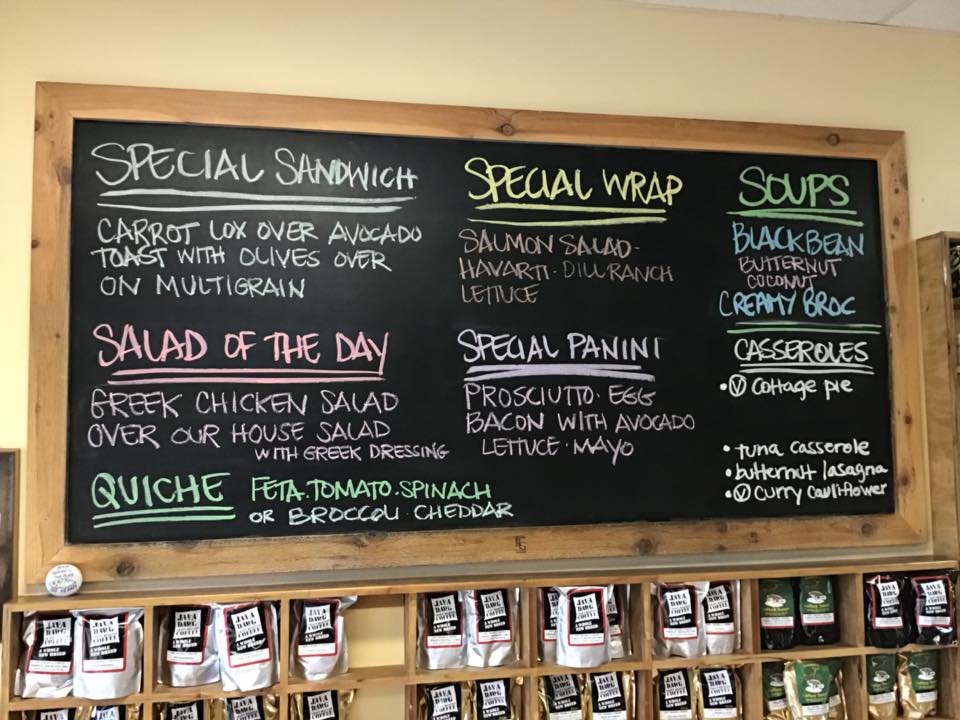 SPECIAL SANDWICH
CARROT LOX OVER AVOCADO
TOAST WITH OLIVES OVER
ON MULTIGRAIN
SALAD OF THE DAY
GREEK CHICKEN SALAD
OVER OUR HOUSE SALAD
WITH GREEK DRESSING
QUICHE FETA·TOMATO·SPINACH
OR BROCCOLI·CHEDDAR
SPECIAL WRAP
SALMON SALAD·
HAVARTI·DILL RANCH
LETTUCE
SPECIAL PANINI
PROSCIUTTO·EGG
BACON WITH AVOCADO
LETTUCE·MAYO
SOUPS
BLACK BEAN
BUTTERNUT
COCONUT
CREAMY BROC
CASSEROLES
• Ⓥ cottage pie
• tuna casserole
• butternut lasagna
• Ⓥ curry cauliflower
JAVA
DAWG
COFFEE
A WHOLE
NEW BREED